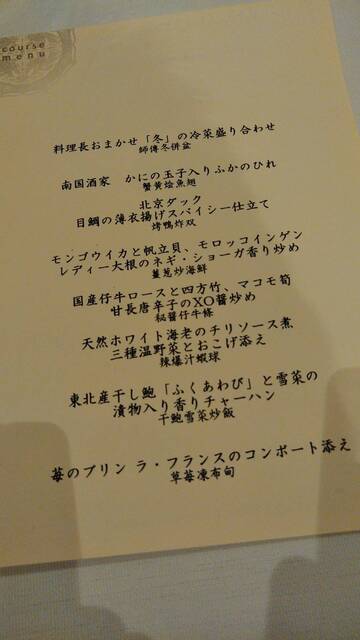 course
menu
料理長おまかせ「冬」の冷菜盛り合わせ
師傅冬併盆
南国酒家　かにの玉子入りふかのひれ
蟹黄燴魚翅
北京ダック
目鯛の薄衣揚げスパイシー仕立て
烤鴨炸双
モンゴウイカと帆立貝、モロッコインゲン
レディー大根のネギ・ショーガ香り炒め
薑葱炒海鮮
国産仔牛ロースと四方竹、マコモ筍
甘長唐辛子のXO醤炒め
秘醤仔牛條
天然ホワイト海老のチリソース煮
三種温野菜とおこげ添え
辣爆汁蝦球
東北産干し鮑「ふくあわび」と雪菜の
漬物入り香りチャーハン
干鮑雪菜炒飯
苺のプリン ラ・フランスのコンポート添え
草莓凍布甸